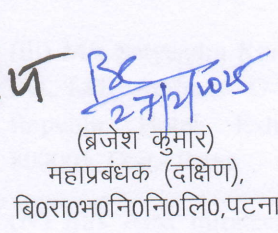 27/2/2025
(ब्रजेश कुमार)
महाप्रबंधक (दक्षिण),
बि0रा0भ0नि0नि0लि0,पटना